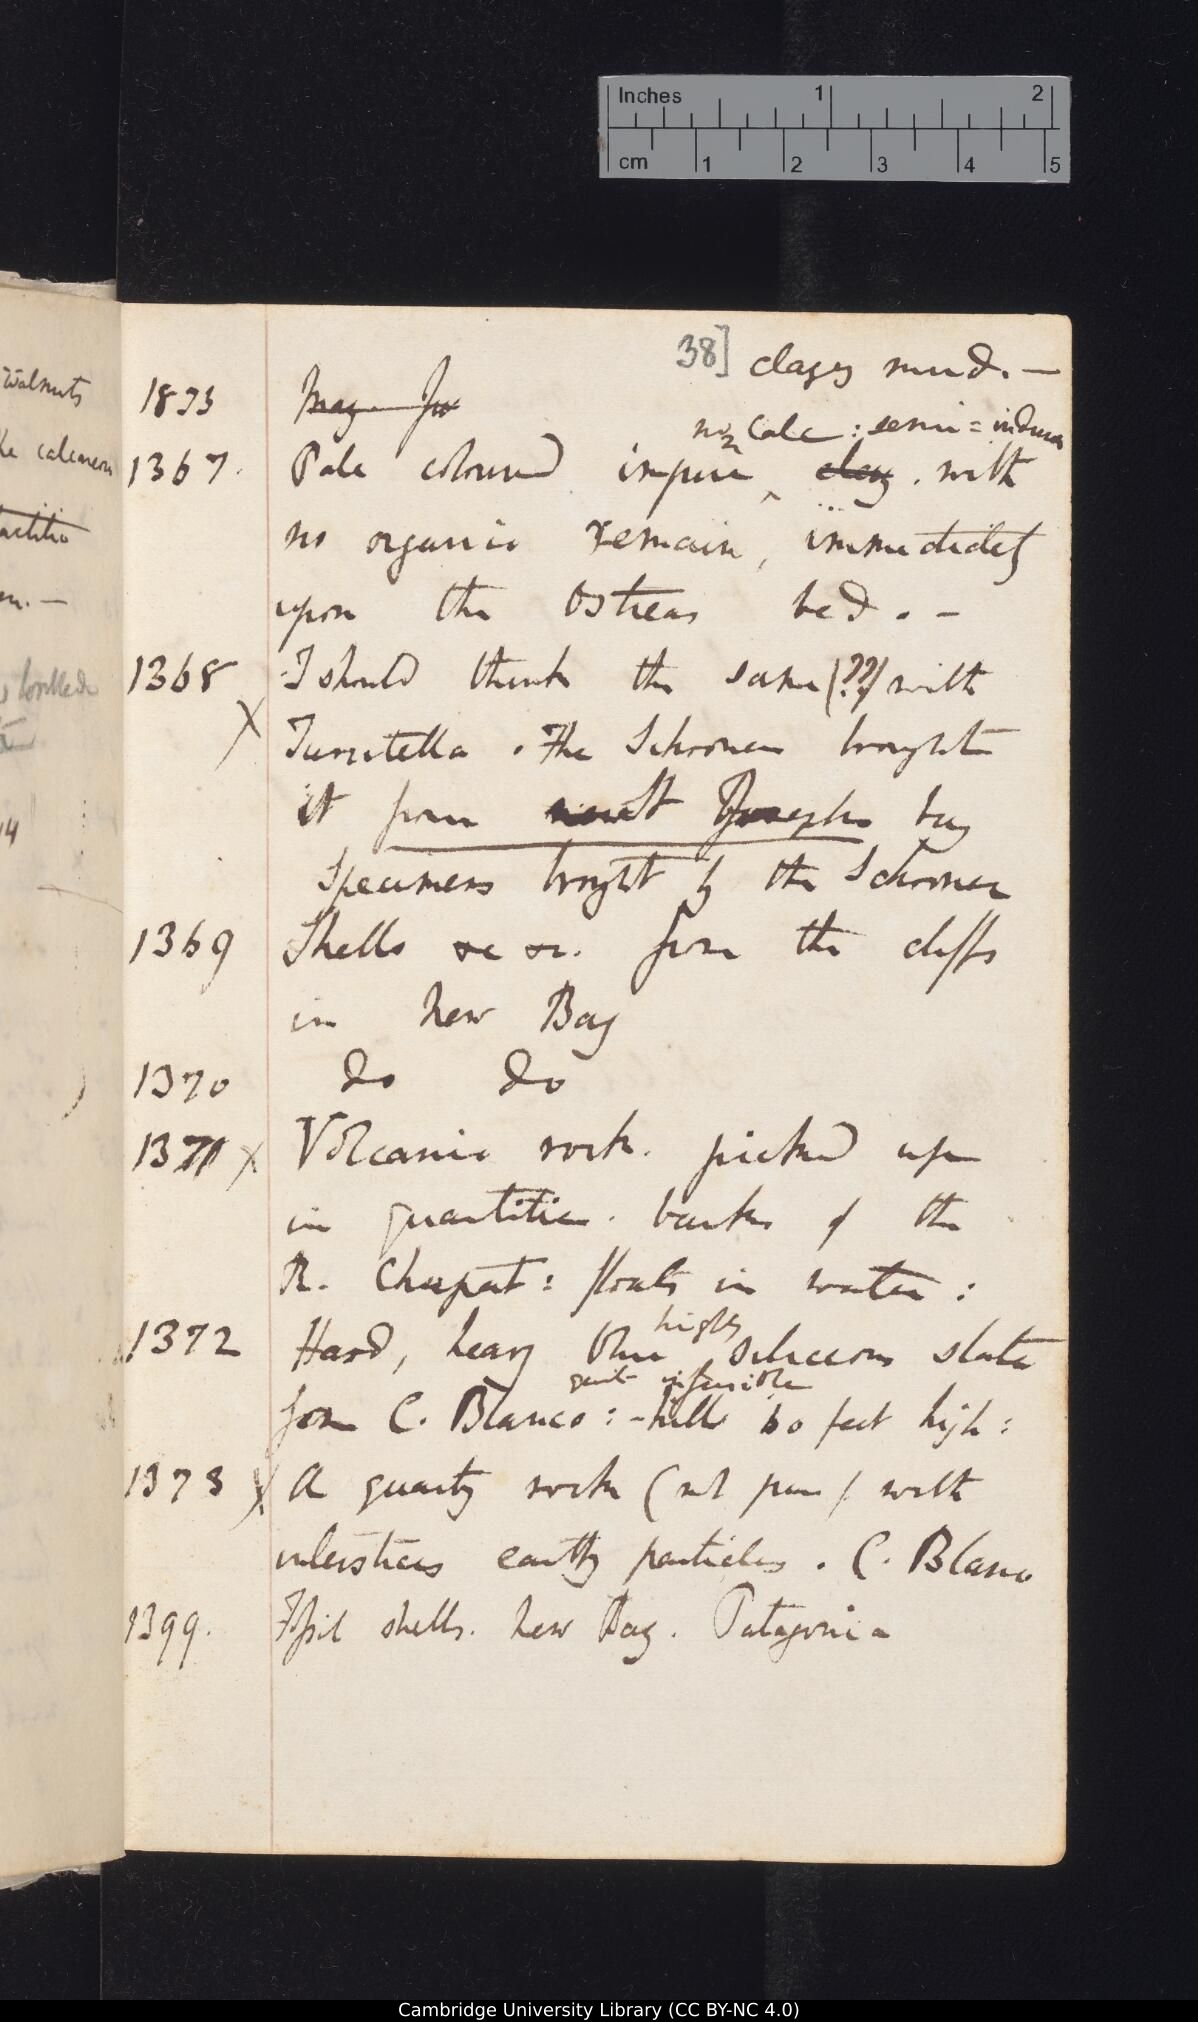 Inches 1 2
cm 1 2 3 4 5
38] clayey mud. —
1833 May — Ju
not Calc: semi = indura
1367. Pale coloured impure clay. with
no organic remain, immediately
upon the Ostreas bed. —
1368 I should think the same (??) with
X Turritella. The Schooner brought
it from St Josephs bay
Specimens brought by the Schooner
1369 Shells &c &c. from the cliffs
in New Bay
1370 do do
1371 X Volcanic rock. picked up
in quantities. banks of the
R. Chupat: floats in water:
highly
1372 Hard, heavy blue siliceous slate
quite infusible
from C. Blanco: - hills 60 feet high:
1373 X A quartz rock (not pure) with
interstices earthy particles. C. Blanco
1399. Fossil shells. New Bay. Patagonia
Walnuts
the calcareous
en. —
Cambridge University Library (CC BY-NC 4.0)